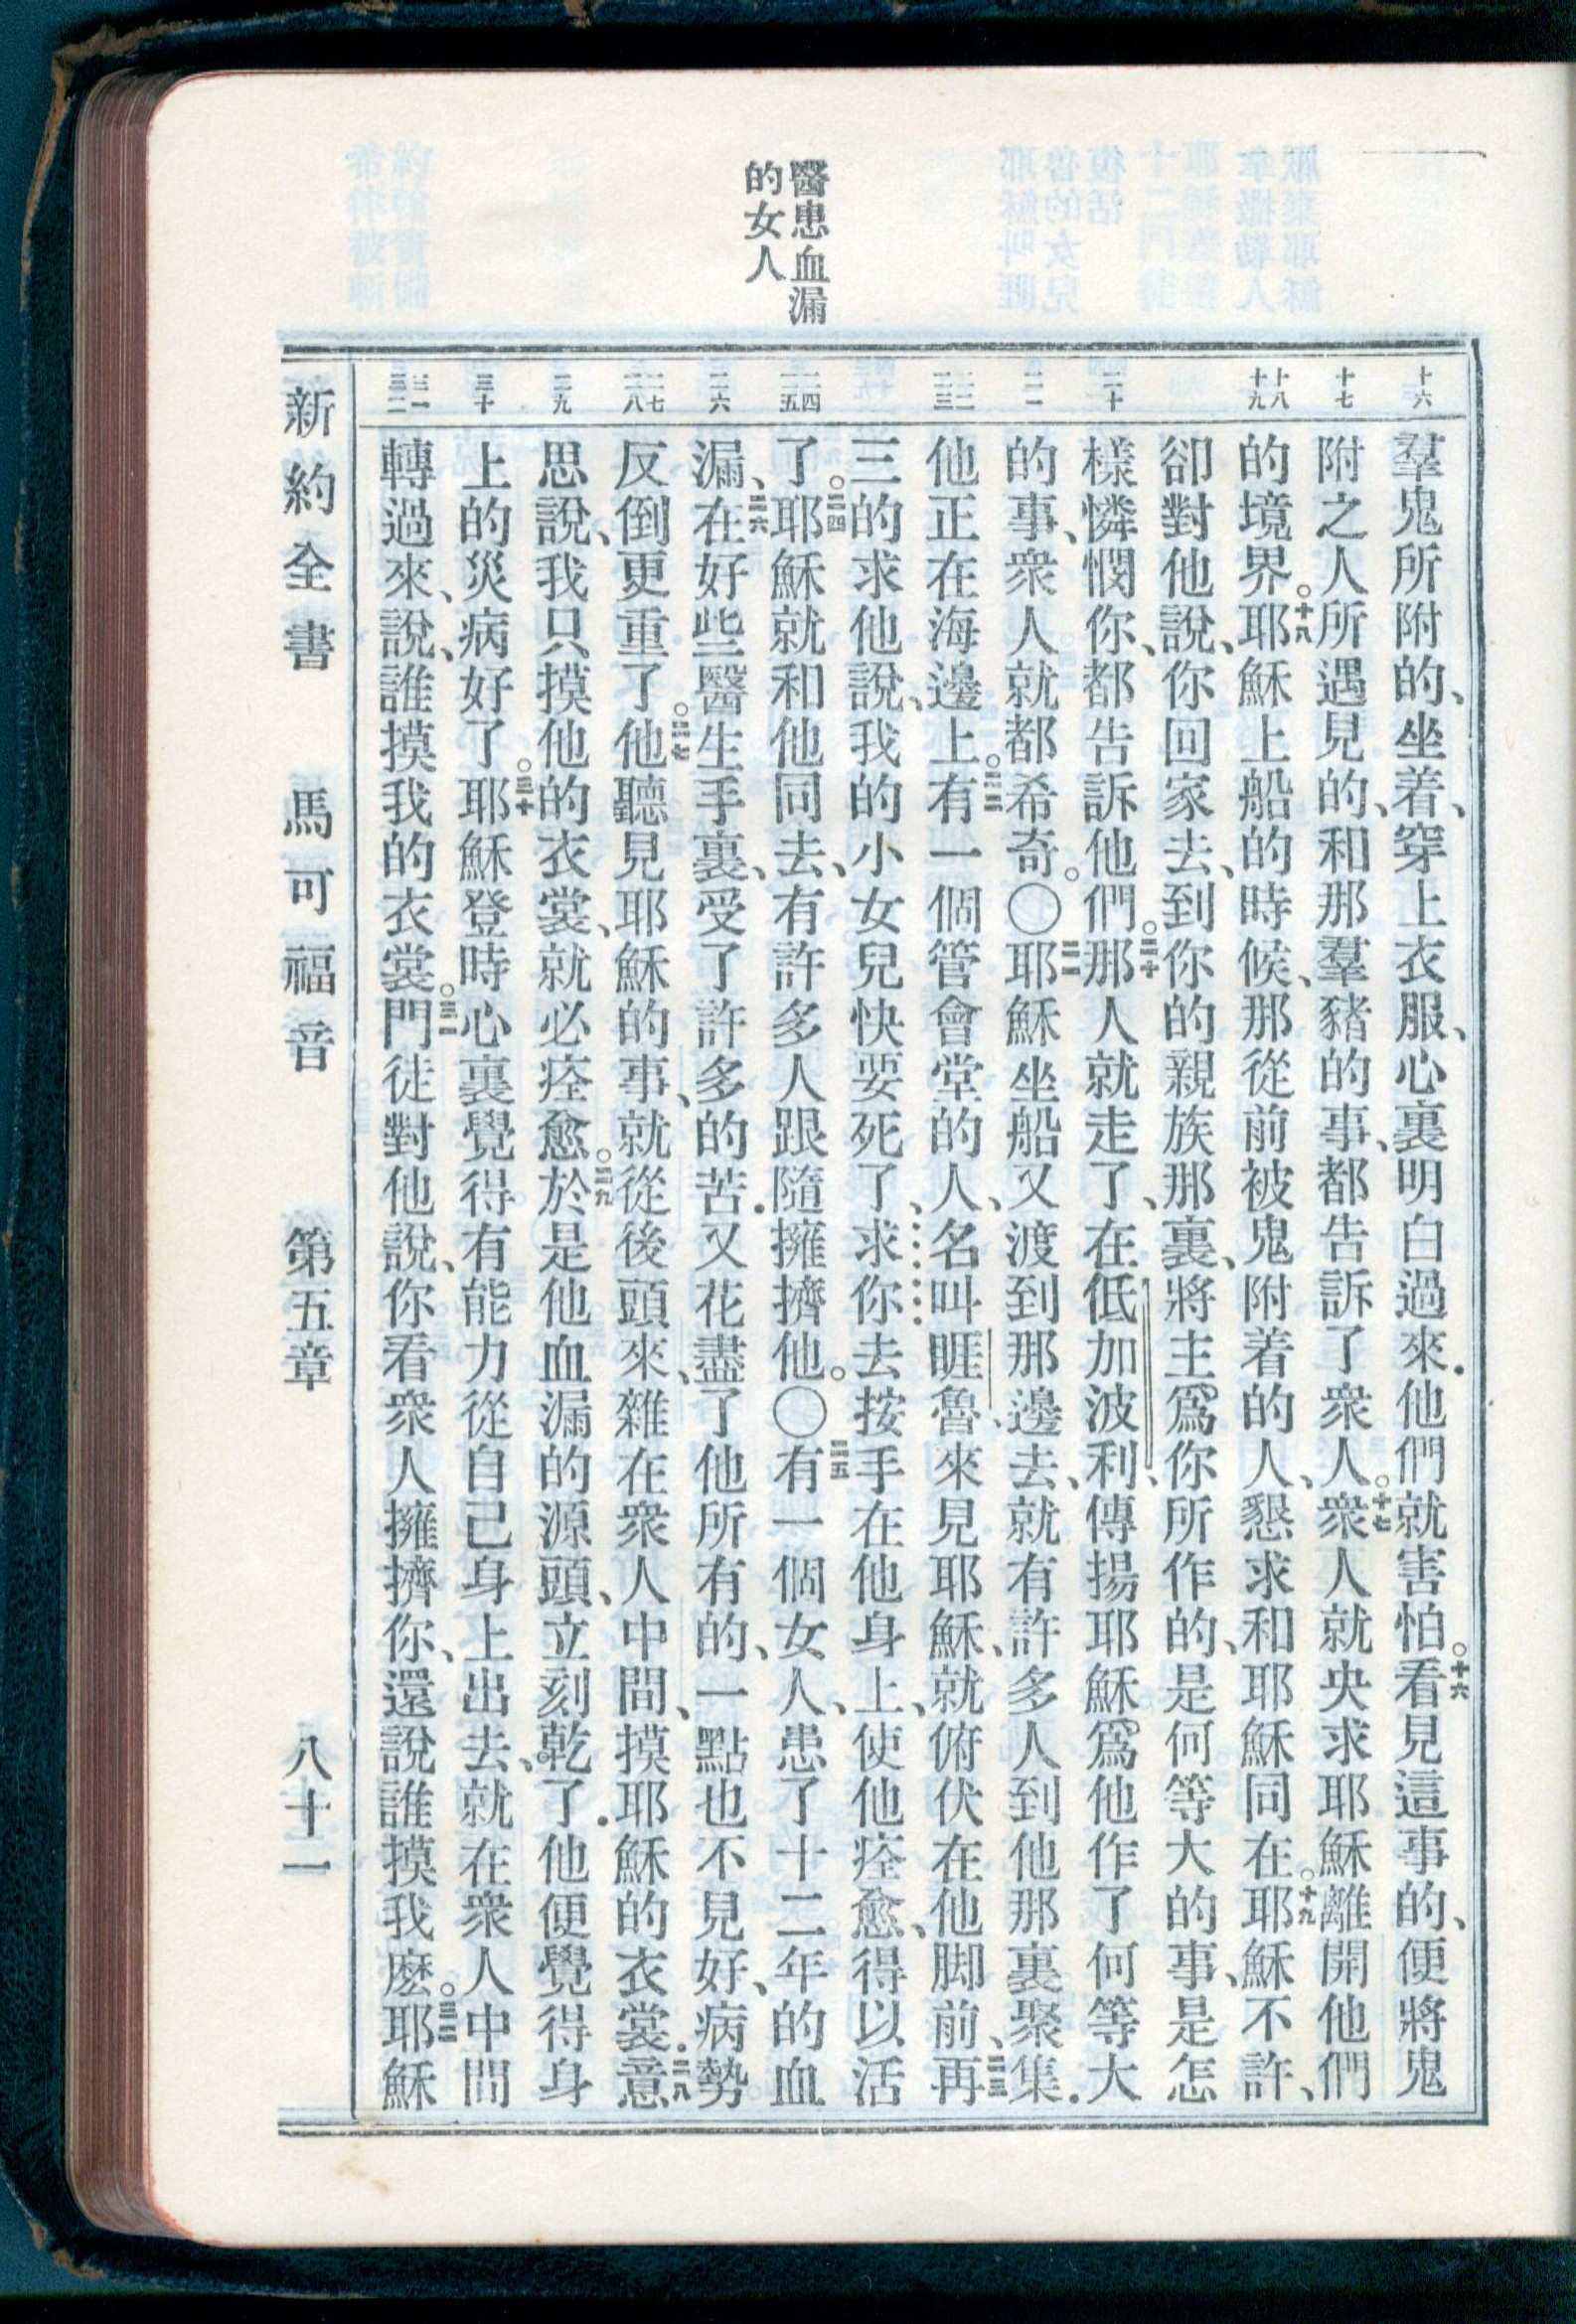 醫患血漏
的女人
十六
十七
十八
十九
二十
二一
二二
二三
二四
二五
二六
二七
二八
二九
三十
三一
三二
羣鬼所附的、坐着、穿上衣服、心裏明白過來．他們就害怕。十六看見這事的、便將鬼
附之人所遇見的、和那羣豬的事、都告訴了衆人。十七衆人就央求耶穌離開他們
的境界。十八耶穌上船的時候、那從前被鬼附着的人、懇求和耶穌同在。十九耶穌不許、
卻對他說、你回家去、到你的親族那裏、將主爲你所作的、是何等大的事、是怎
樣憐憫你、都告訴他們。二十那人就走了、在低加波利、傳揚耶穌爲他作了何等大
的事、衆人就都希奇。〇二一耶穌坐船又渡到那邊去、就有許多人到他那裏聚集．
他正在海邊上。二二有一個管會堂的人、名叫睚魯、來見耶穌、就俯伏在他脚前、二三再
三的求他說、我的小女兒快要死了、求你去按手在他身上、使他痊愈、得以活
了。二四耶穌就和他同去、有許多人跟隨擁擠他。〇二五有一個女人、患了十二年的血
漏、二六在好些醫生手裏、受了許多的苦．又花盡了他所有的、一點也不見好、病勢
反倒更重了。二七他聽見耶穌的事、就從後頭來、雜在衆人中間、摸耶穌的衣裳．二八意
思說、我只摸他的衣裳、就必痊愈。二九於是他血漏的源頭、立刻乾了．他便覺得身
上的災病好了。三十耶穌登時心裏覺得有能力從自己身上出去、就在衆人中間
轉過來、說、誰摸我的衣裳。三一門徒對他說、你看衆人擁擠你、還說誰摸我麼。三二耶穌
新約全書 馬可福音 第五章 八十一